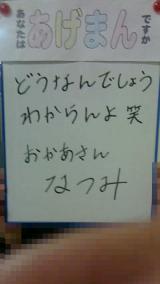 あなたは
あげまん
ですか
どうなんでしょう
わからんよ 笑
おかあさん
なつみ